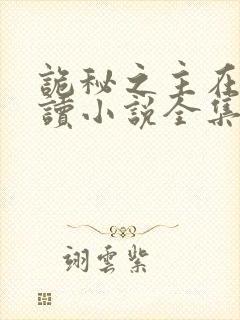 詭秘之主在
讀小說全集
翊雲紫